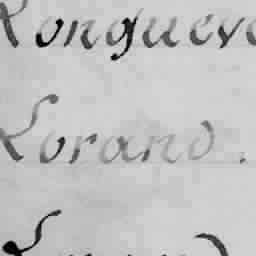 Longueve
Lorand.